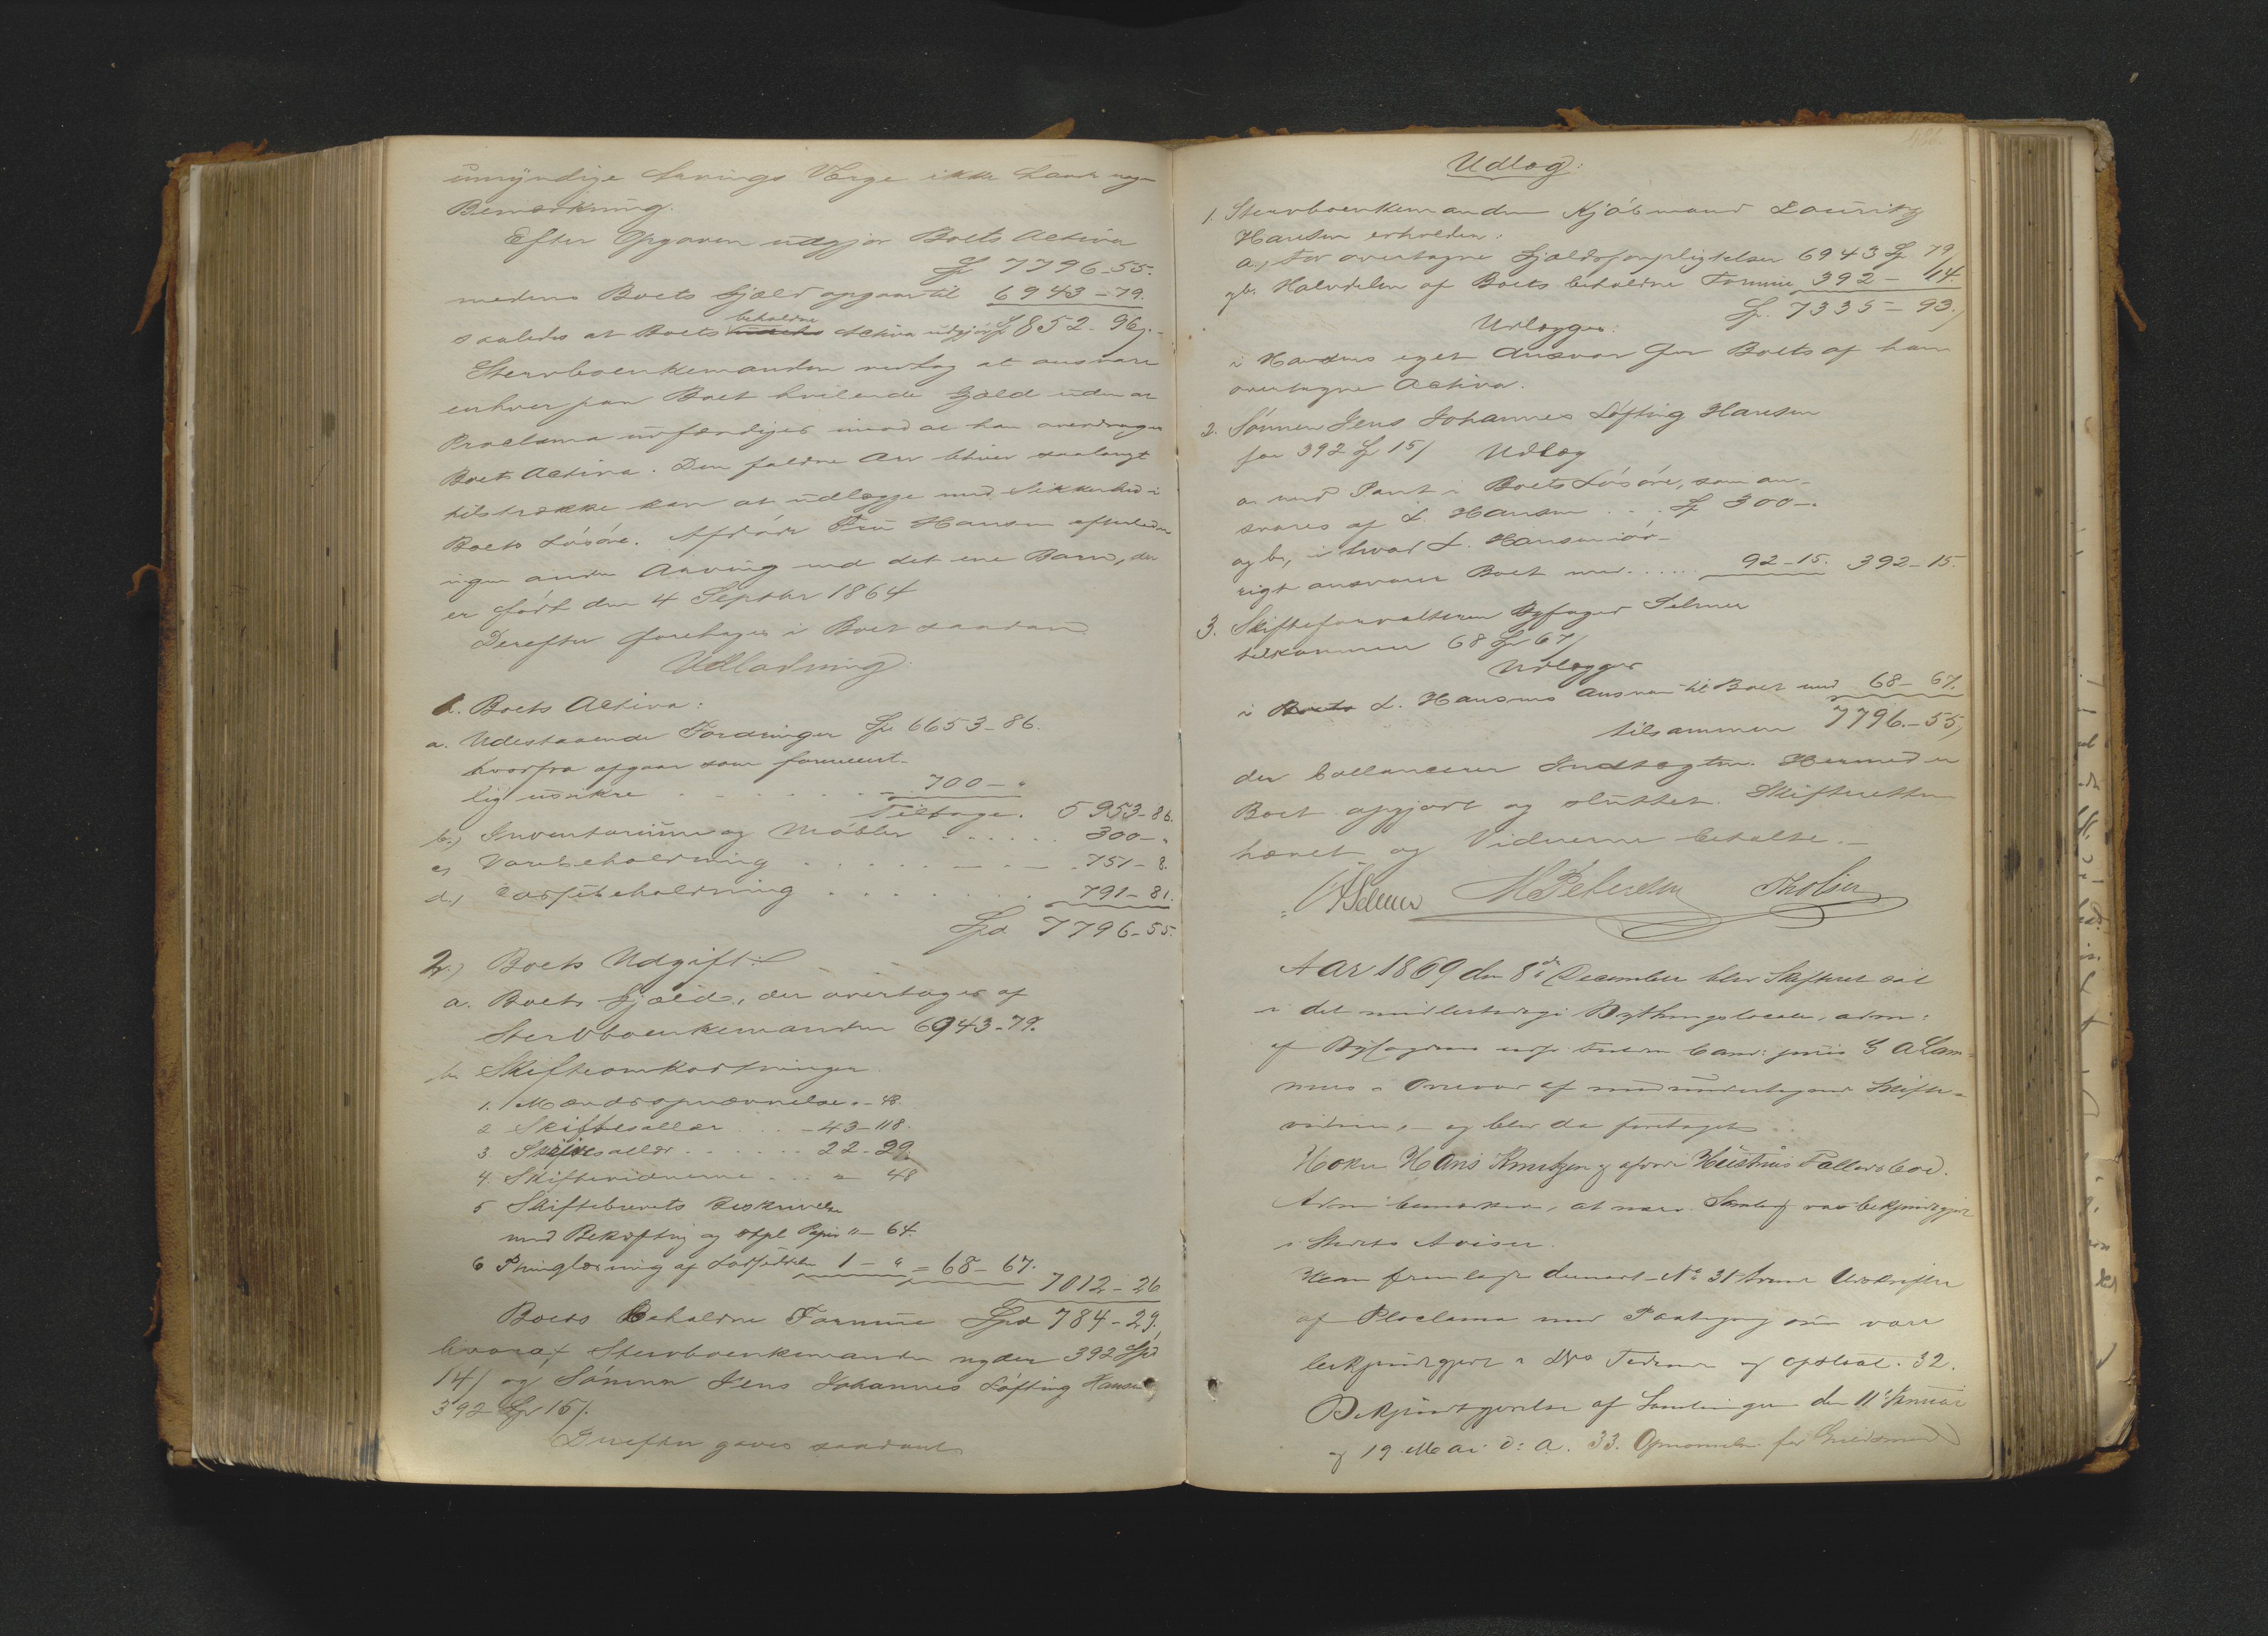 umyndige Arvings Værge ikke havde nogen
Bemærkning.
Efter Opgaven udgjør Boets Activa
Sp 7796-55.
medens Boets Gjæld opgaar til 6943-79.
saaledes at Boets beholdne Activa udgjør Sp 852-96/.
Stervboenkemanden vedtog at ansvare
enhver paa Boet hvilende Gjæld uden at
Proclama udfærdiges imod at han overdrages
Boets Activa. Den faldne Arv bliver saalangt
tilstrække kan at udlægge med Sikkerhed i
Boets Løsøre. Afdøde Fru Hansen efterlader
ingen anden Arving end det ene Barn, der
er født den 4 Septbr 1864
Derefter foretages i Boet saadan
Udlodning:
1. Boets Activa:
a. Udestaaende Fordringer Sp 6653-86.
hvorfra afgaar som forment-
lig usikre . . . . . . 700-"
Tilbage. 5953-86.
b.) Inventarium og Møbler . . . . . 300-"
c) Varebeholdning . . . . . . 751-8.
d.) Cassebeholdning . . . . . . 791-81.
Spd 7796-55.
2.) Boets Udgift:
a. Boets Gjæld, der overtages af
Stervboenkemanden 6943-79.
b. Skifteomkostninger
1. Mændsopnævnelse "-48.
2 Skiftesallær . . . -43-118.
3. . . . . . . 22-29.
4. Skiftevidnerne . . . " 48
5 Skiftebrevets Beskrivelse
med Bekræftig og stpl Papir "-64.
6 Thinglæsning af 1-" = 68-67.
7012-26
Boets Beholdne Formue Spd 784-29.
hvoraf Stervboenkemanden nyder 392 Spd
14/ og Sønnen Jens Johannes Løfting Hansen
392 Sp 15/.
Derefter gaves saadant
Udlæg:
1. Stervboenkemanden Kjøbmand Lauritz
Hansen erholder:
a, for overtagne Gjældsforpligtelser 6943 Sp 79/
og b. Halvdelen af Boets beholdne Formue 392-14.
Sp. 7335-93./
Udlægges:
i Hansens eget Ansvar for Boets af ham
overtagne Activa.
2. Sønnen Jens Johannes Løfting Hansen
for 392 Sp 15/ Udlæg
a. med Pant i Boets Løsøre, som an-
svares af L. Hansen . . . Sp 300-.
og b, i hvad L. Hansen iøv-
rigt ansvarer Boet med . . . . . 92-15. 392-15.
3. Skifteforvalteren Byfoged Selmer
tilkommer 68 Sp 67/
Udlægges
i Boets L. Hansens Ansvar til Boet med 68-67.
tilsammen 7796.-55,
der ballancerer Indtægten. Hermed er
Boet opgjort og sluttet. Skifteretten
hævet og Vidnerne betalte.-
Selmer M Petersen
Aar 1869 den 8de December blev Skifteret sat
i det midlertidige Bythingslocale, adm:
af Byfogdens Cand: juris G A Lam-
mers i Overvær af medundertegnede Skifte-
vidner,- og blev da foretaget . .
Hoker Hans Knutzen og afdøde Hustrus Fallitbod.
Adm: bemærker, at nærv. Samling var bekjendtgjort
i Stedets Aviser.
Han fremlagde dernæst No 31 tvende Udskrifter
af Ploclama med Paategning om være
bekjendtgjort i dNo Tidende og opslaat. 32.
Bekjendtgjørelse af Samlingen den 11te Januar
og 19. Mai d: A. 33.